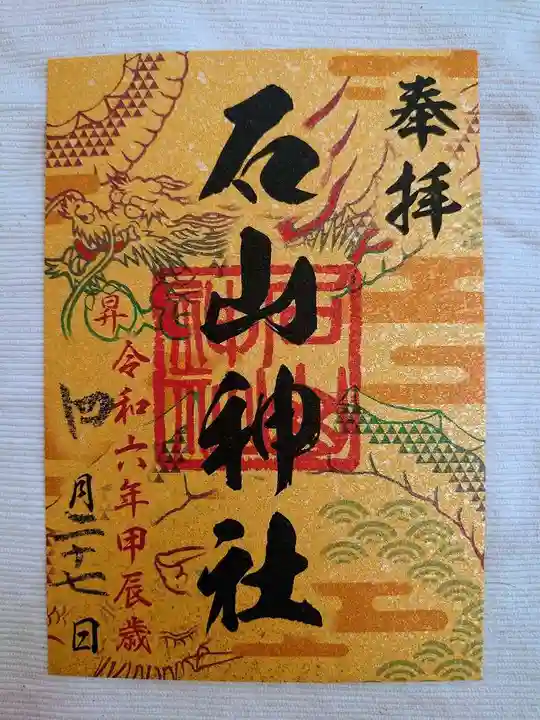 奉拝
石山神社
昇
令和六年甲辰歳
四月二十七日